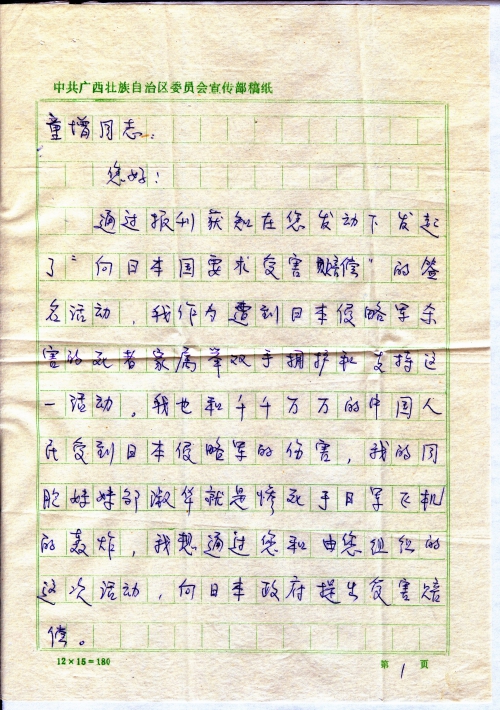 中共广西壮族自治区委员会宣传部稿纸
童增同志：
您好！
通过报刊获知在您发动下发起
了“向日本国要求受害赔偿”的签
名活动，我作为遭到日本侵略军杀
害的死者家属举双手拥护和支持这
一活动，我也和千千万万的中国人
民受到日本侵略军的伤害，我的同
胞妹妹邹淑华就是惨死于日军飞机
的轰炸，我想通过您和由您组织的
这次活动，向日本政府提出受害赔
偿。
12×15＝180
第 1 页